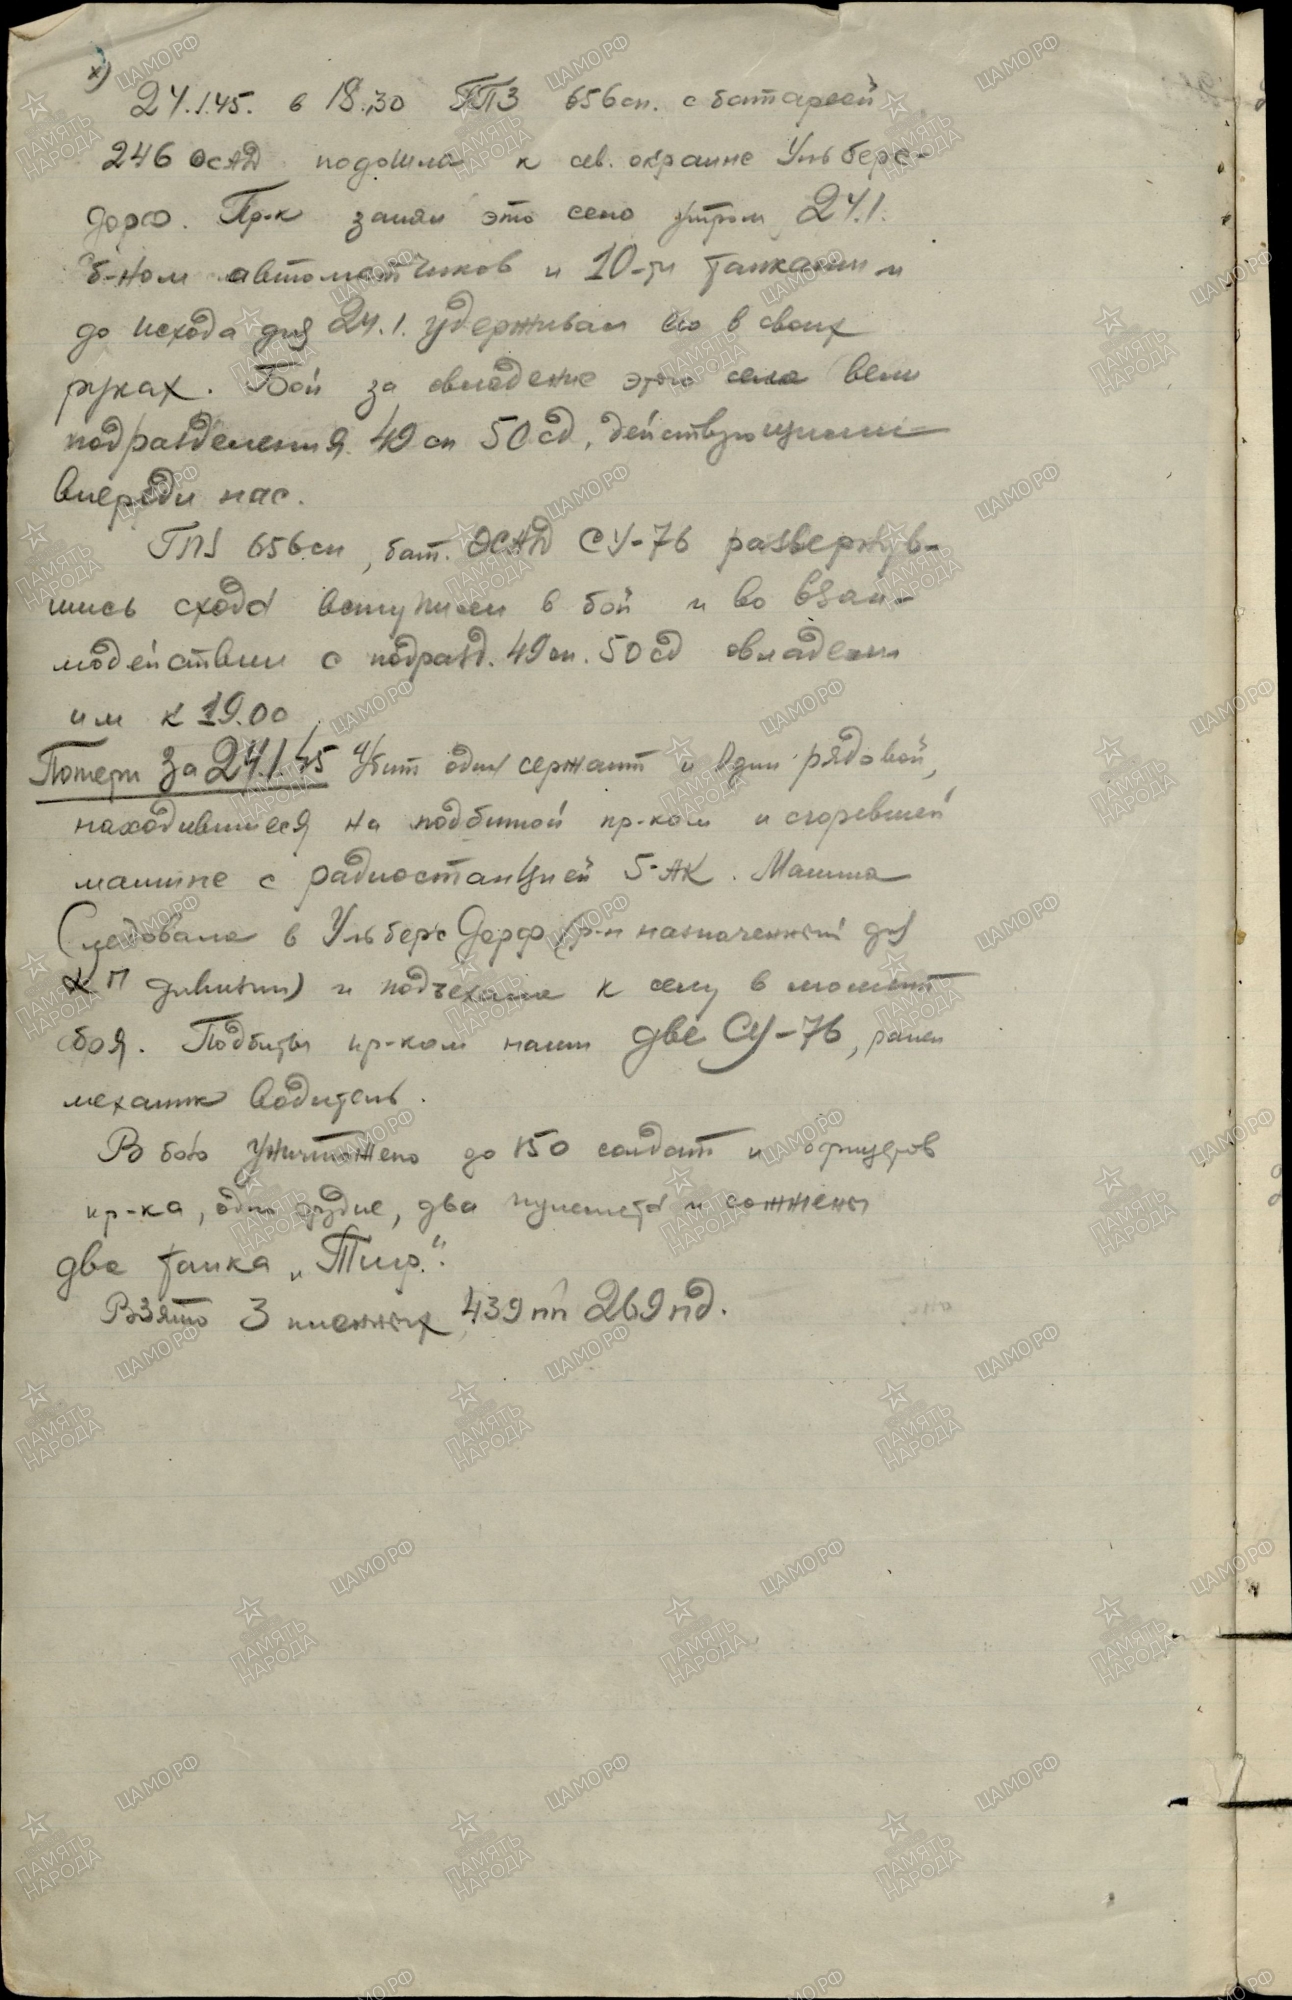 х)
24.1.45. в 18.30 ГПЗ 656 сп. с батареей
246 ОСАД подошла к сев. окраине Ульберс-
дорф. Пр-к занял это село утром 24.1.
б-ном автоматчиков и 10-ти танками и
до исхода дня 24.1. удерживал его в своих
руках. Бой за овладение этого села вели
подразделения 49 сп 50 сд, действующими
впереди нас.
ГПЗ 656 сп, бат. ОСАД СУ-76 развернув-
шись сходу вступили в бой и во взаи-
модействии с подразд. 49 сп. 50 сд овладели
им к 19.00
Потери за 24.1.45 Убит один сержант и один рядовой,
находившиеся на подбитой пр-ком и сгоревшей
машине с радиостанцией 5-АК. Машина
следовала в Ульберсдорф (р-н назначенный для
КП дивизии) и подъехала к селу в момент
боя. Подбиты пр-ком наши две СУ-76, ранен
механик водитель.
В бою уничтожено до 150 солдат и офицеров
пр-ка, одно орудие, два пулемета и сожжены
два танка „Тигр".
Взято 3 пленных 439 пп 269 пд.
ПАМЯТЬ НАРОДА
ЦАМО РФ